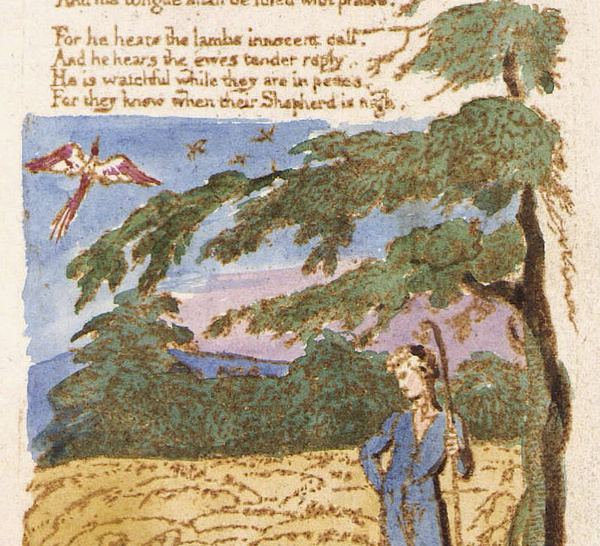 And his tongue shall be filled with praise.
For he hears the lambs innocent call.
And he hears the ewes tender reply.
He is watchful while they are in peace.
For they know when their Shepherd is nigh.